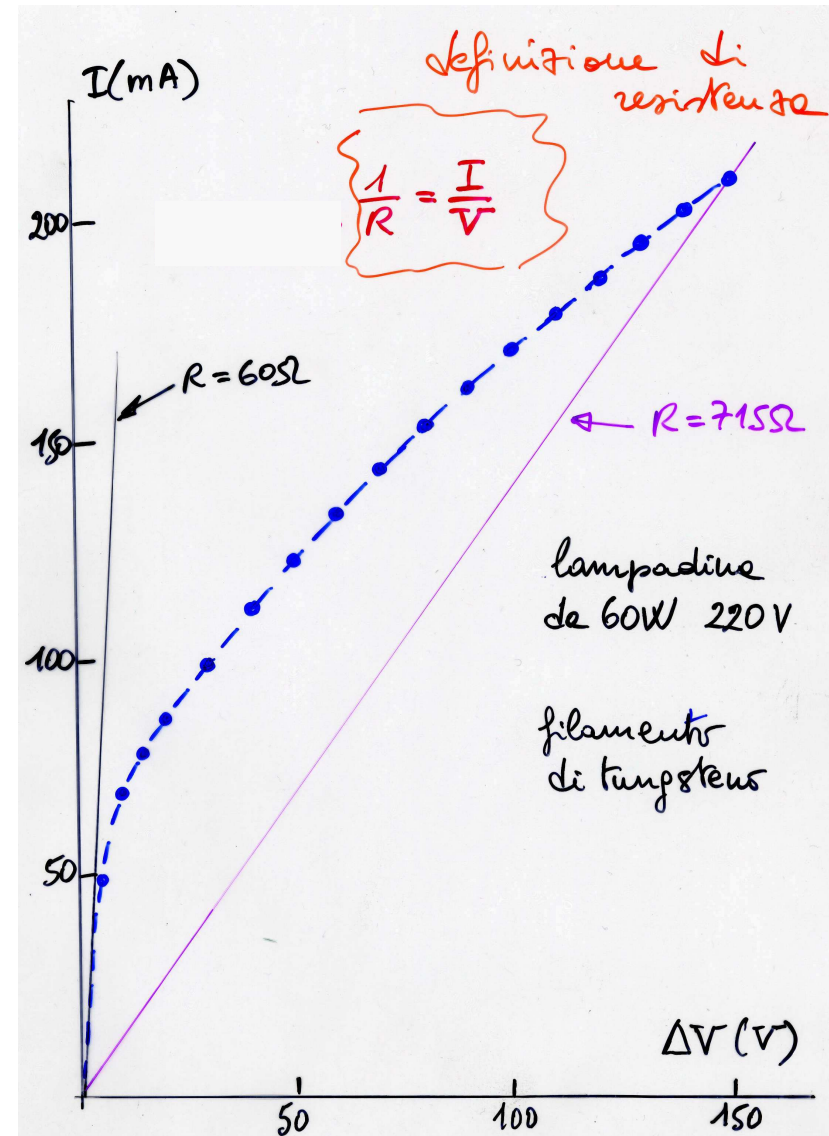 I(mA)
definizione di
resistenza
1/R = I/V
200
R=60Ω
150
R=715Ω
lampadina
da 60W 220V
100
filamento
di tungsteno
50
ΔV(V)
50 100 150